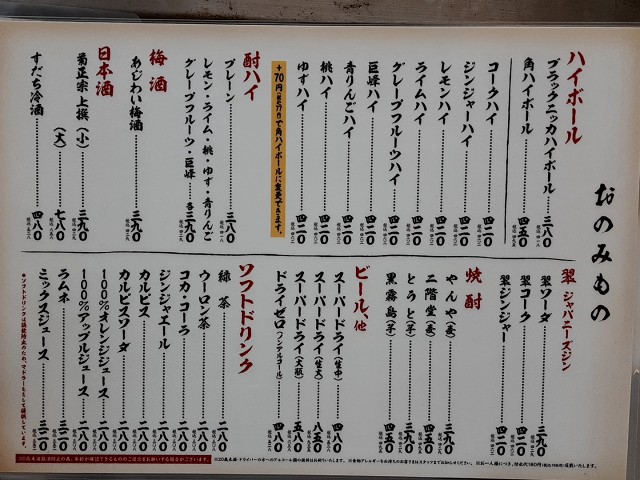 おのみもの
ハイボール
ブラックニッカハイボール 三八〇
角ハイボール 四五〇
コークハイ 四二〇
ジンジャーハイ 四二〇
レモンハイ 四二〇
ライムハイ 四二〇
グレープフルーツハイ 四二〇
巨峰ハイ 四二〇
青りんごハイ 四二〇
桃ハイ 四二〇
ゆずハイ 四二〇
+70円(税込77円)で角ハイボールに変更できます。
酎ハイ
プレーン 三八〇
レモン・ライム・桃・ゆず・青りんご
グレープフルーツ・巨峰 各三九〇
梅酒
あじわい梅酒 三九〇
日本酒
菊正宗 上撰(小) 三九〇
(大) 七八〇
すだち冷酒 四八〇
翠 ジャパニーズジン
翠ソーダ 三九〇
翠コーク 四二〇
翠ジンジャー 四二〇
焼酎
やんや(麦) 三九〇
二階堂(麦) 四五〇
とろと(芋) 三九〇
黒霧島(芋) 四五〇
ビール、他
スーパードライ(生中) 四八〇
スーパードライ(生大) 八五〇
スーパードライ(大瓶) 五八〇
ドライゼロ(ノンアルコール) 四八〇
ソフトドリンク
緑茶 二八〇
ウーロン茶 二八〇
コカ・コーラ 二八〇
ジンジャエール 二八〇
カルピス 二八〇
カルピスソーダ 二八〇
100%オレンジジュース 二八〇
100%アップルジュース 二八〇
ラムネ 三一〇
ミックスジュース 三二〇